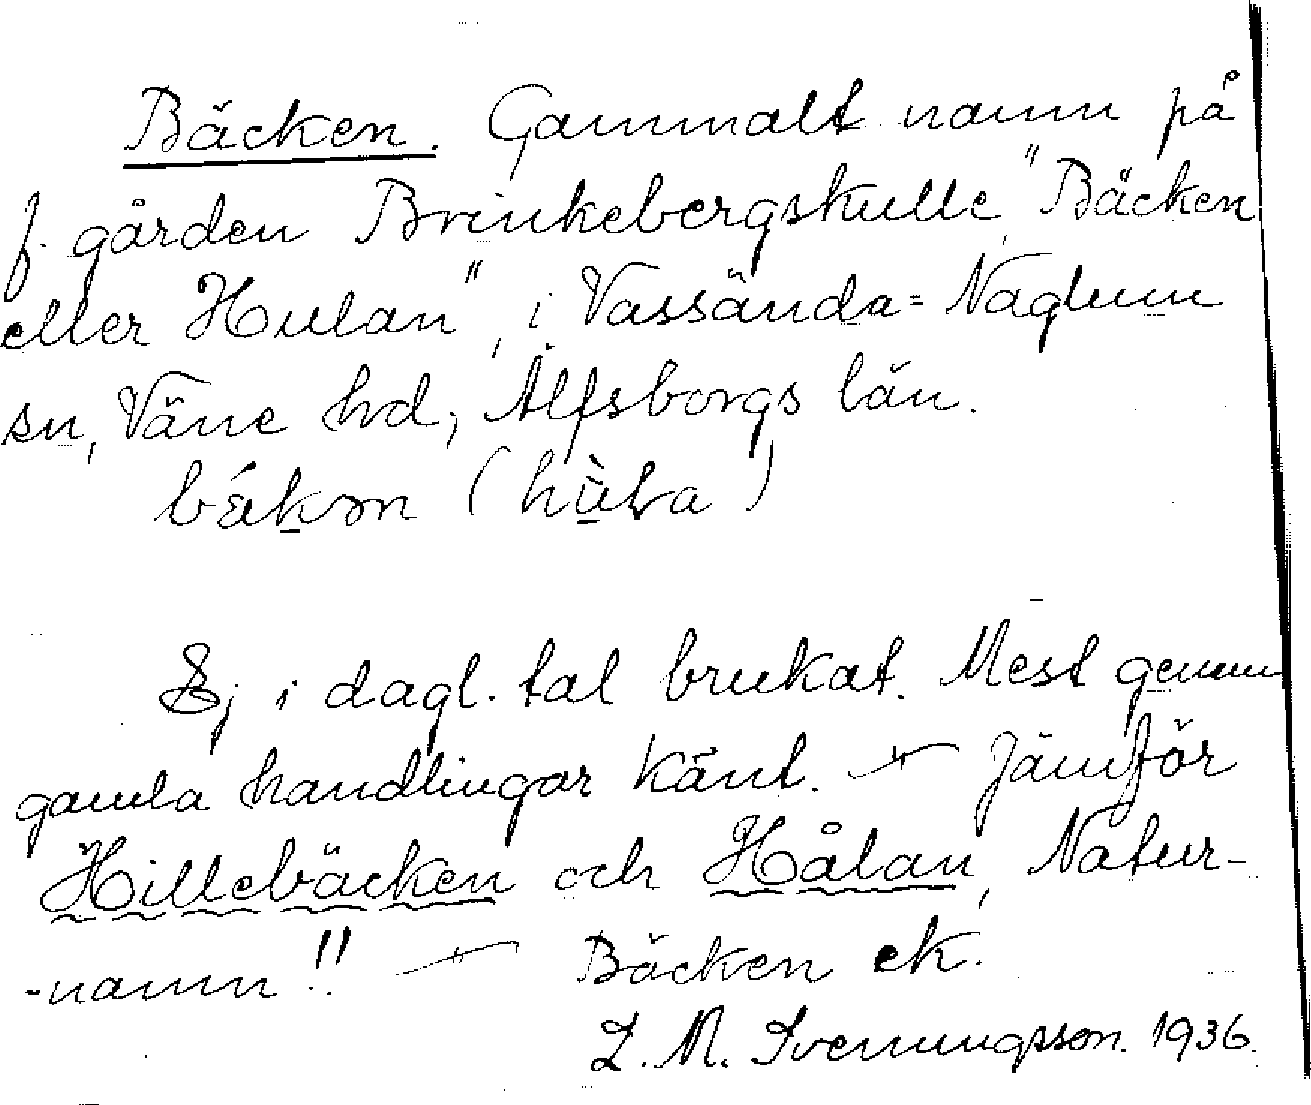 Bäcken. Gammalt namn på
f. gården Brinkebergskulle, "Bäcken
eller Hulan", i Vassända=Naglum
sn, Väne hd, Älfsborgs län.
(
)
Ej i dagl. tal brukat. Mest genom
gamla handlingar känt. — Jämför
Hillebäcken och Hålan, Natur-
-namn!! — Bäcken ek.
L. M. Svenungsson. 1936.